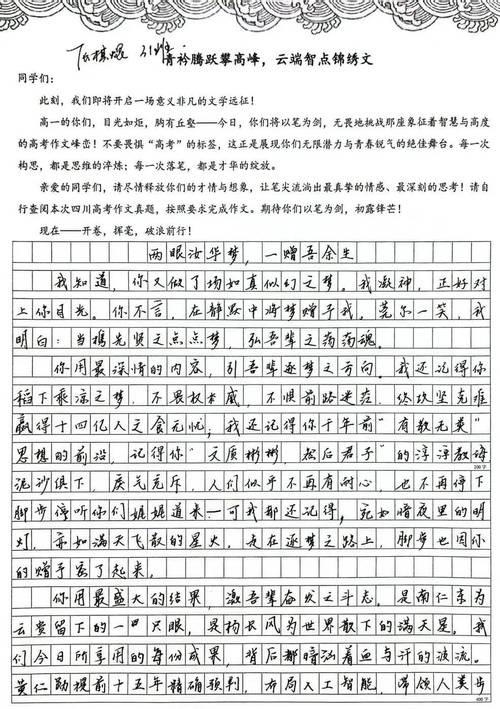 青衿腾跃攀高峰，云端智点锦绣文
同学们：
此刻，我们即将开启一场意义非凡的文学远征！
高一的你们，目光如炬，胸有丘壑——今日，你们将以笔为剑，无畏地挑战那座象征着智慧与高度
的高考作文峰峦！不要畏惧“高考”的标签，这正是展现你们无限潜力与青春锐气的绝佳舞台。每一次
构思，都是思维的淬炼；每一次落笔，都是才华的绽放。
亲爱的同学们，请尽情释放你们的才情与想象，让笔尖流淌出最真挚的情感、最深刻的思考！请自
行查阅本次四川高考作文真题，按照要求完成作文。期待你们以笔为剑，初露锋芒！
现在——开卷，挥毫，破浪前行！
两眼汝华梦，一赠吾余生
我知道，你又做了场如真似幻之梦。我凝神，正好对
上你目光。你不言，在静默中将梦赠予我。莞尔一笑，我
明白：当携先贤之点点梦，弘吾辈之荡荡魂。
你用最深情的内容，引吾辈逐梦之方向。我还记得你
稻下乘凉之梦，不畏权威，不惧前路迷茫，终攻坚克难
赢得十四亿人之食无忧；我还记得你千年前“有教无类”
思想的前沿，记得你“文质彬彬，然后君子”的淳淳教诲
泥沙俱下，戾气充斥，人们似乎不再有耐心，也不再停下
脚步谛听你们娓娓道来——可我都还记得，宛如暗夜里的明
灯，亦如满天飞散的星火，走在逐梦之路上，脚步也因你
的赠予亮了起来。
你用最盛大的结果，激吾辈奋发之斗志。是南仁东为
云贵留下的一只眼，是杨长风为世界散下的满天星。我
们今日所享用的每份成果，背后都暗涵着血与汗的波流。
黄仁勋提前十五年精确预判，布局人工智能，带领人类步
200字
400字